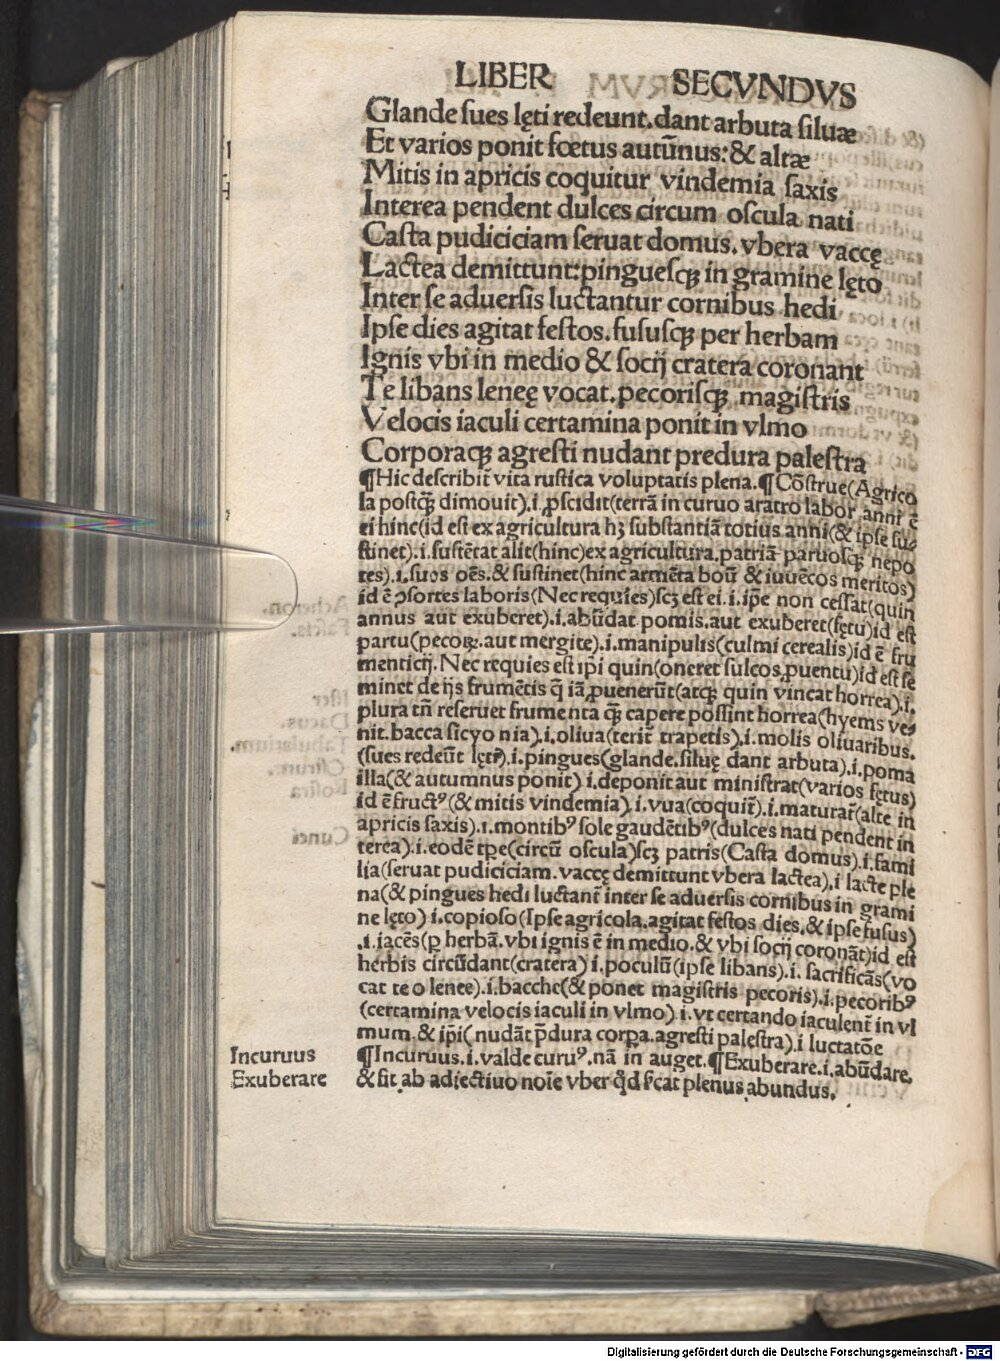 LIBER SECVNDVS
Glande sues lęti redeunt. dant arbuta siluæ
Et varios ponit fœtus autūnus: & altæ
Mitis in apricis coquitur vindemia saxis
Interea pendent dulces circum oscula nati
Casta pudiciciam seruat domus. vbera vaccę
Lactea demittunt: pinguesqꝫ in gramine lęto
Inter se aduersis luctantur cornibus hedi
Ipse dies agitat festos. fususqꝫ per herbam
Ignis vbi in medio & socij cratera coronant
Te libans leneę vocat. pecorisqꝫ magistris
Velocis iaculi certamina ponit in vlmo
Corporaqꝫ agresti nudant predura palestra
¶Hic describit̄ vita rustica voluptatis plena. ¶Cōstrue (Agrico
la postqꝫ dimouit). i. ꝓscidit (terrā in curuo aratro labor anni ē
ei hinc (id est ex agricultura hꝫ substantiā totius anni (& ipse su
stinet). i. sustētat alit (hinc) ex agricultura. patriā paruosqꝫ nepo
tes). i. suos oēs. & sustinet (hinc armēta boū & iuuēcos meritos)
id ē ꝯsortes laboris (Nec requies) scꝫ est ei. i. ip̄e non cessat (quin
annus aut exuberet). i. abūdat pomis. aut exuberet (fętu) id est
partu (pecoꝝ. aut mergite). i. manipulis (culmi cerealis) id ē fru
menticij. Nec requies est ip̄i quin (oneret sulcos ꝓuentu) id est se
minet de ijs frumētis q̄ iā ꝓuenerūt (atqꝫ quin vincat horrea). i.
plura tn̄ reseruet frumenta qꝫ capere possint horrea (hyems ve
nit. bacca sicyonia). i. oliua (terit̄ trapetis). i. molis oliuaribus.
(sues redeūt lęti). i. pingues (glande. siluę dant arbuta). i. poma
illa (& autumnus ponit). i. deponit aut ministrat (varios fętus)
id ē fructꝰ (& mitis vindemia). i. vua (coquit̄). i. maturat̄ (alte in
apricis saxis). i. montibꝰ sole gaudētibꝰ (dulces nati pendent in
terea). i. eodē tp̄e (circū oscula) scꝫ patris (Casta domus). i. fami
lia (seruat pudiciciam. vaccę demittunt vbera lactea). i lacte ple
na (& pingues hedi luctant̄ inter se aduersis cornibus in grami
ne lęto) i. copioso (Ipse agricola. agitat festos dies. & ipse fusus)
.i. iacēs (ꝑ herbā. vbi ignis ē in medio. & vbi socij coronāt) id est
herbis circūdant (cratera) i. poculū (ipse libans). i. sacrificās (vo
cat te o lenee). i. bacche (& ponet magistris pecoris). i. pecoribꝰ
(certamina velocis iaculi in vlmo) i. vt certando iaculent̄ in vl
mum. & ip̄i (nudāt p̄dura corpa. agresti palestra). i luctatōe
¶Incuruus. i. valde curuꝰ. nā in auget. ¶Exuberare. i. abūdare.
& fit ab adiectiuo noīe vber qd̄ sīcat plenus abundus.
Incuruus
Exuberare
Digitalisierung gefördert durch die Deutsche Forschungsgemeinschaft - DFG